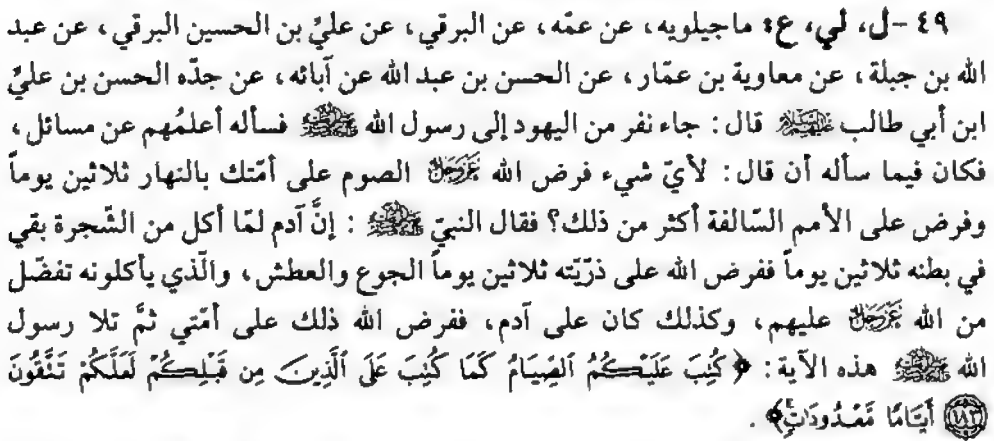 ٤٩ -ل، لي، ع: ماجيلويه، عن عمّه، عن البرقي، عن عليّ بن الحسين البرقي، عن عبد
الله بن جبلة، عن معاوية بن عمّار، عن الحسن بن عبد الله عن آبائه، عن جدّه الحسن بن عليّ
ابن أبي طالب عليهم السلام قال: جاء نفر من اليهود إلى رسول الله ﷺ فسأله أعلمُهم عن مسائل،
فكان فيما سأله أن قال: لأيّ شيء فرض الله عَزَّوَجَلَّ الصوم على أمّتك بالنهار ثلاثين يوماً
وفرض على الأمم السّالفة أكثر من ذلك؟ فقال النبيّ ﷺ: إنَّ آدم لمّا أكل من الشّجرة بقي
في بطنه ثلاثين يوماً ففرض الله على ذرّيّته ثلاثين يوماً الجوع والعطش، والّذي يأكلونه تفضّل
من الله عَزَّوَجَلَّ عليهم، وكذلك كان على آدم، ففرض الله ذلك على أمّتي ثمَّ تلا رسول
الله ﷺ هذه الآية: ﴿كُتِبَ عَلَيْكُمُ ٱلصِّيَامُ كَمَا كُتِبَ عَلَى ٱلَّذِينَ مِن قَبْلِكُمْ لَعَلَّكُمْ تَتَّقُونَ
﴿١٨٣﴾ أَيَّامًا مَّعْدُودَاتٍۚ﴾.